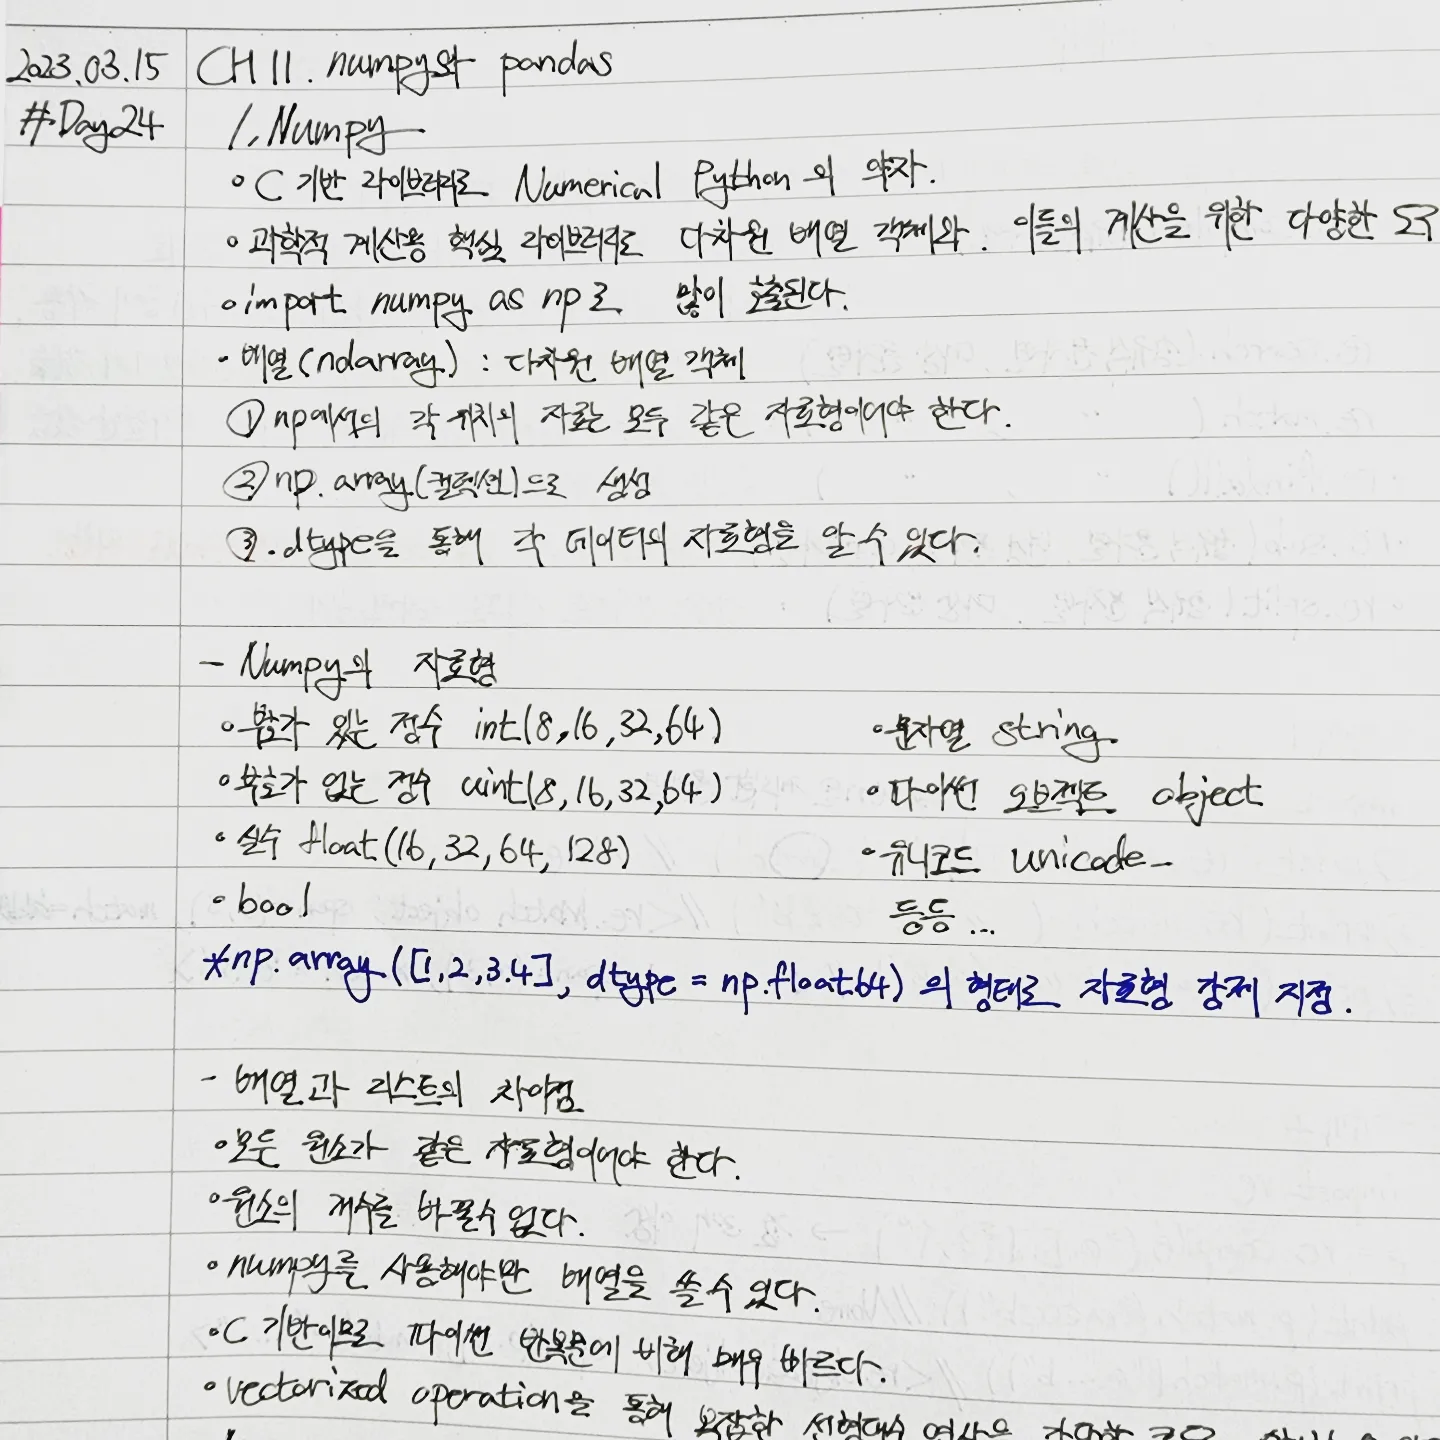 2023.03.15 CH 11. numpy와 pandas
#Day24 1. Numpy
◦ C 기반 라이브러리로 Numerical Python의 약자.
◦ 과학적 계산용 핵심 라이브러리로 다차원 배열 객체와. 이들의 계산을 위한 다양한
◦ import numpy as np로 많이 호출된다.
· 배열(ndarray) : 다차원 배열 객체
① np에서의 각 위치의 자료는 모두 같은 자료형이어야 한다.
② np.array(컬렉션)으로 생성
③ .dtype을 통해 각 데이터의 자료형을 알 수 있다.
- Numpy의 자료형
◦ 부호가 있는 정수 int(8,16,32,64) ◦ 문자열 string
◦ 부호가 없는 정수 uint(8,16,32,64) ◦ 파이썬 오브젝트 object
◦ 실수 float(16,32,64,128) ◦ 유니코드 unicode_
◦ bool 등등...
*np.array([1,2,3.4], dtype = np.float64)의 형태로 자료형 강제 지정.
- 배열과 리스트의 차이점
◦ 모든 원소가 같은 자료형이어야 한다.
◦ 원소의 개수를 바꿀수 없다.
◦ numpy를 사용해야만 배열을 쓸 수 있다.
◦ C 기반이므로 파이썬 반복문에 비해 매우 빠르다.
◦ vectorized operation을 통해 복잡한 선형대수 연산을